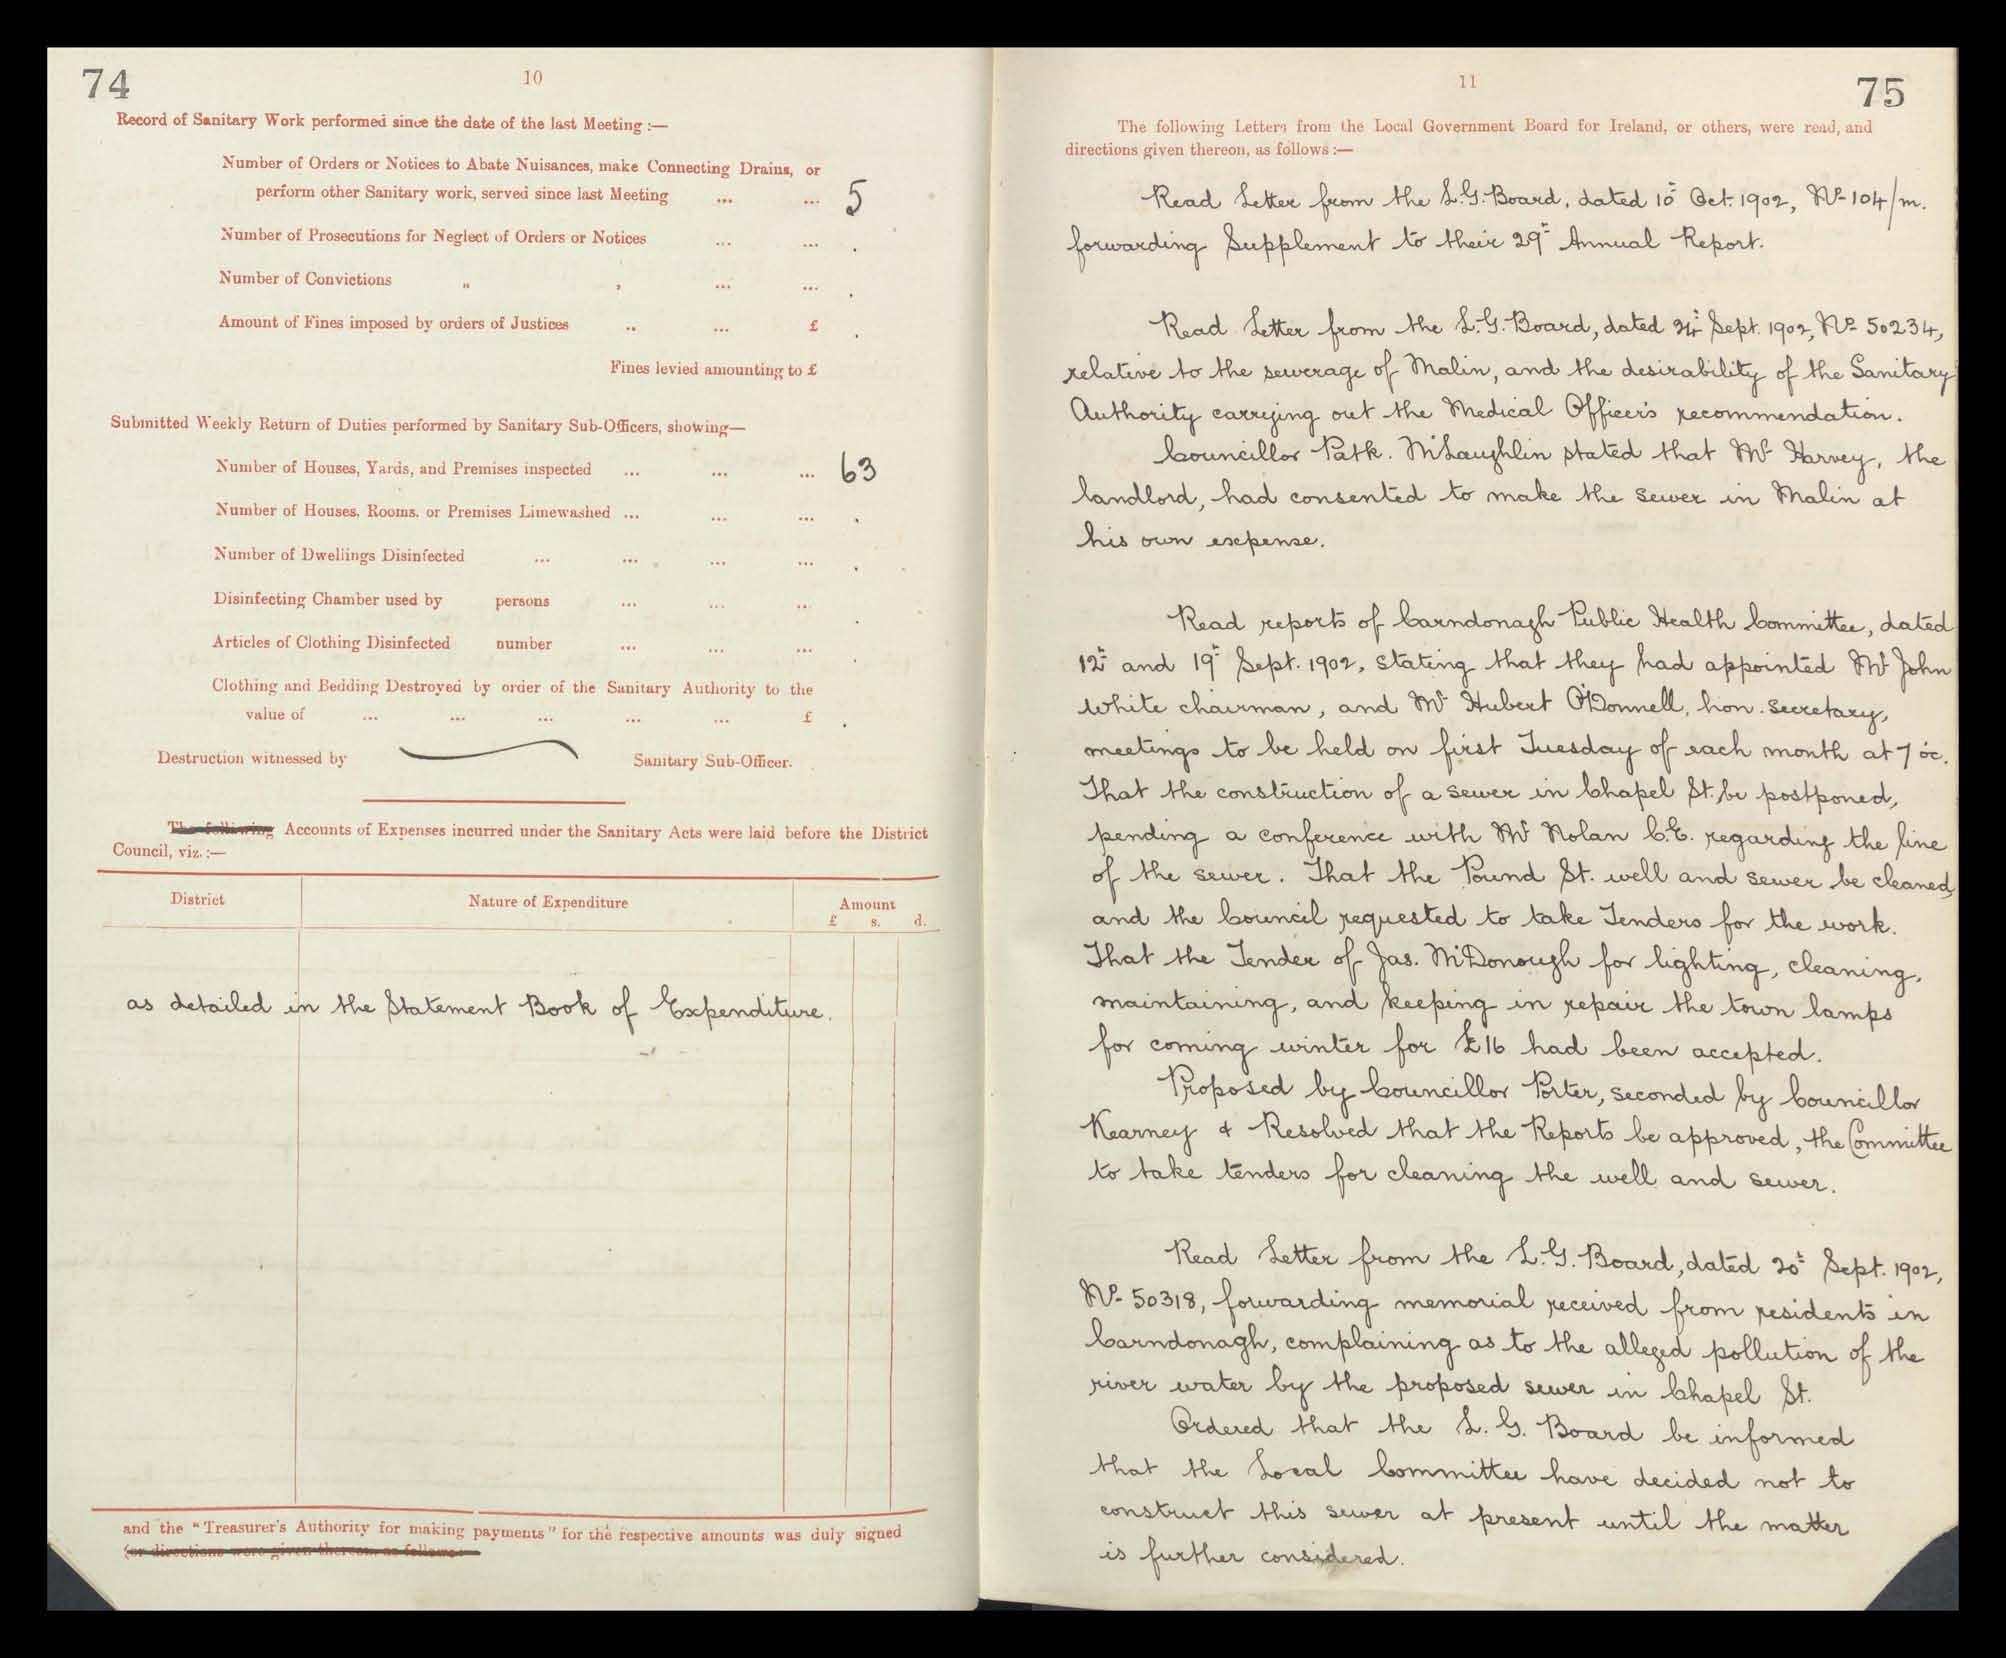 74
10
Record of Sanitary Work performed since the date of the last Meeting :—
Number of Orders or Notices to Abate Nuisances, make Connecting Drains, or
perform other Sanitary work, served since last Meeting ... ... 5
Number of Prosecutions for Neglect of Orders or Notices ... ... .
Number of Convictions „ , ... ... .
Amount of Fines imposed by orders of Justices .. ... £ .
Fines levied amounting to £
Submitted Weekly Return of Duties performed by Sanitary Sub-Officers, showing—
Number of Houses, Yards, and Premises inspected ... ... ... 63
Number of Houses, Rooms, or Premises Limewashed ... ... ... .
Number of Dwellings Disinfected ... ... ... ... .
Disinfecting Chamber used by persons ... ... ... .
Articles of Clothing Disinfected number ... ... ... .
Clothing and Bedding Destroyed by order of the Sanitary Authority to the
value of ... ... ... ... ... £ .
Destruction witnessed by Sanitary Sub-Officer.
The following Accounts of Expenses incurred under the Sanitary Acts were laid before the District
Council, viz. :—
District Nature of Expenditure Amount
£ s. d.
as detailed in the Statement Book of Expenditure.
and the "Treasurer's Authority for making payments" for the respective amounts was duly signed
(or directions were given thereon, as follows:
11
75
The following Letters from the Local Government Board for Ireland, or others, were read, and
directions given thereon, as follows :—
Read Letter from the L.G. Board, dated 10th Oct. 1902, No 104/m.
forwarding Supplement to their 29th Annual Report.
Read Letter from the L.G. Board, dated 24th Sept. 1902, No 50234,
relative to the sewerage of Malin, and the desirability of the Sanitary
Authority carrying out the Medical Officer's recommendation.
Councillor Patk. McLaughlin stated that Mr Harvey, the
landlord, had consented to make the sewer in Malin at
his own expense.
Read reports of Carndonagh Public Health Committee, dated
12th and 19th Sept. 1902, stating that they had appointed Mr John
White chairman, and Mr Hubert O'Donnell, hon. secretary,
meetings to be held on first Tuesday of each month at 7 oc.
That the construction of a sewer in Chapel St. be postponed,
pending a conference with Mr Nolan C.E. regarding the line
of the sewer. That the Pound St. well and sewer be cleaned,
and the Council requested to take Tenders for the work.
That the Tender of Jas. McDonough for lighting, cleaning,
maintaining, and keeping in repair the town lamps
for coming winter for £16 had been accepted.
Proposed by Councillor Porter, seconded by Councillor
Kearney & Resolved that the Reports be approved, the Committee
to take tenders for cleaning the well and sewer.
Read Letter from the L.G. Board, dated 20th Sept. 1902,
No 50318, forwarding memorial received from residents in
Carndonagh, complaining as to the alleged pollution of the
river water by the proposed sewer in Chapel St.
Ordered that the L. G. Board be informed
that the Local Committee have decided not to
construct this sewer at present until the matter
is further considered.